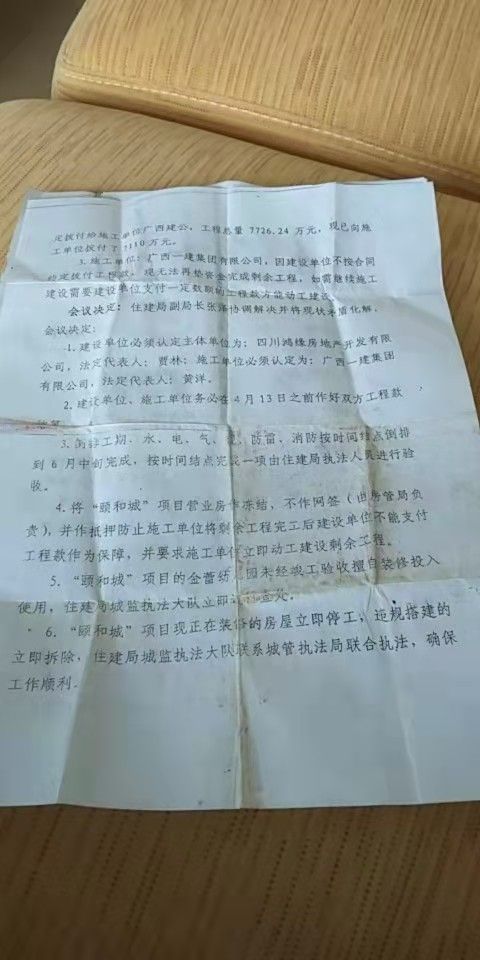 定拨付给施工单位广西建公，工程总量 7726.24 万元，现已向施
工单位拨付了7110 万元。
3.施工单位：广西一建集团有限公司，因建设单位不按合同
约定拨付工程款，现无法再垫资金完成剩余工程，如需继续施工
建设需要建设单位支付一定数额的工程款方能动工建设。
会议决定：住建局副局长张泽协调解决并将现状矛盾化解，
会议决定：
1.建设单位必须认定主体单位为：四川鸿缘房地产开发有限
公司，法定代表人：贾林；施工单位必须认定为：广西一建集团
有限公司，法定代表人：黄洋。
2.建设单位、施工单位务必在4月13日之前作好双方工程款
3. 工期，水、电、气、防雷、消防按时间结点倒排
到 6 月中旬完成，按时间结点完成一项由住建局执法人员进行验
收。
4.将“颐和城”项目营业房作冻结，不作网签（由房管局负
责），并作抵押防止施工单位将剩余工程完工后建设单位不能支付
工程款作为保障，并要求施工单位立即动工建设剩余工程。
5.“颐和城”项目的金蕾幼儿园未经竣工验收擅自装修投入
使用，住建局城监执法大队立即查处。
6.“颐和城”项目现正在装修的房屋立即停工，违规搭建的
立即拆除，住建局城监执法大队联系城管执法局联合执法，确保
工作顺利.